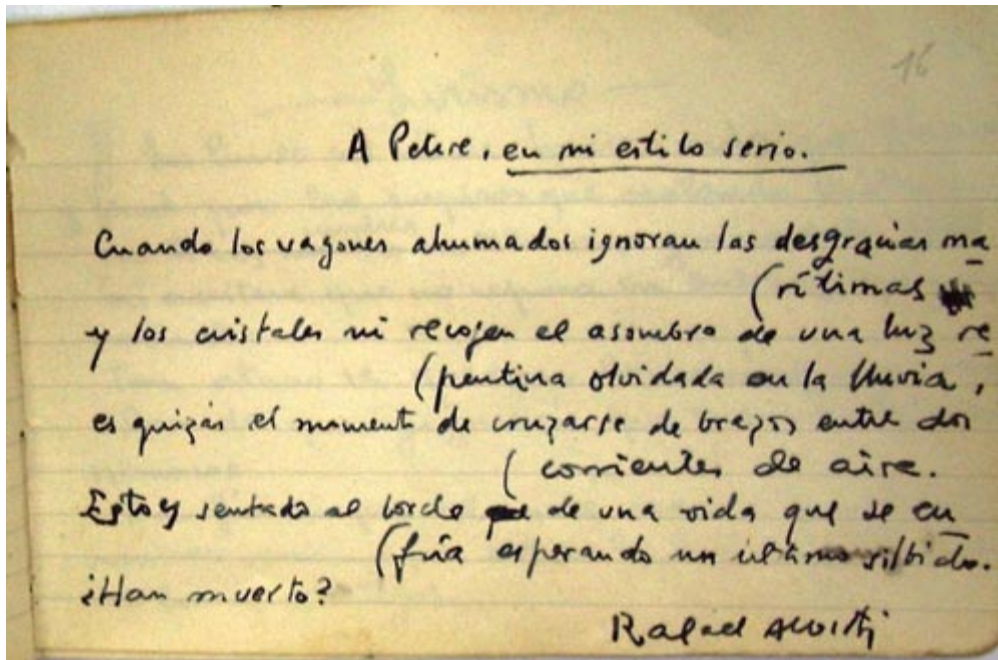 16
A Petere, en mi estilo serio.
Cuando los vagones ahumados ignoran las desgracias ma
(rítimas
y los cristales ni recogen el asombro de una luz re
(pentina olvidada en la lluvia,
es quizás el momento de cruzarse de brazos entre dos
(corrientes de aire.
Estoy sentado al borde de una vida que se en
(fría esperando un último silbido.
¿Han muerto?
Rafael Alberti